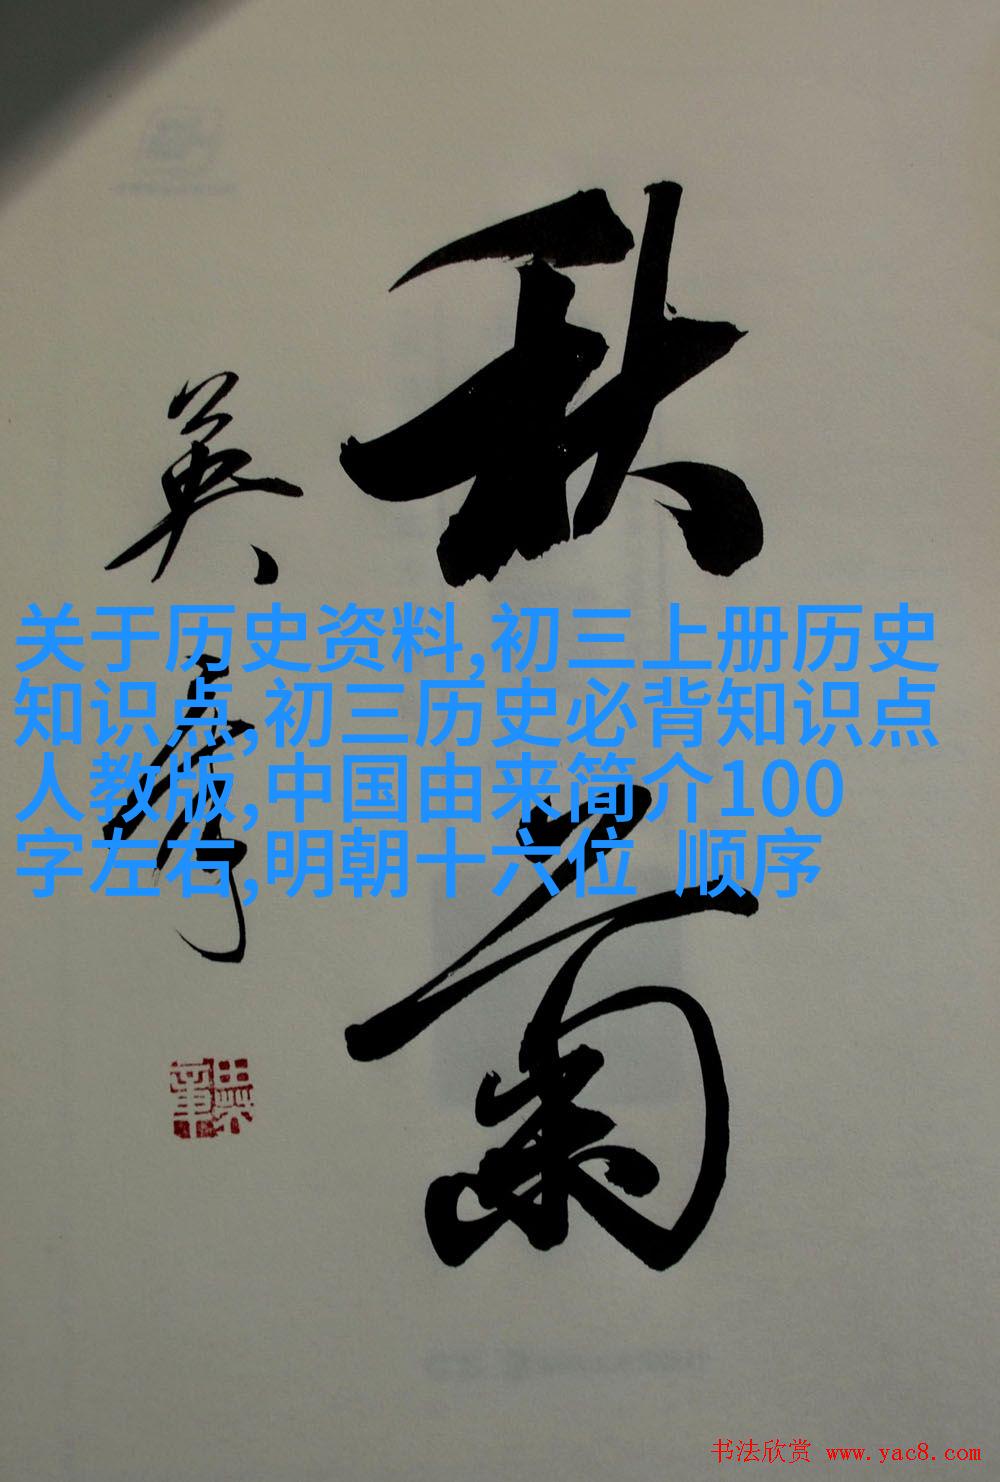 秋菊
英彦
关于历史资料,初三上册历史
知识点,初三历史必背知识点
人教版,中国由来简介100
字左右,明朝十六位 顺序
书法欣赏 www.yac8.com